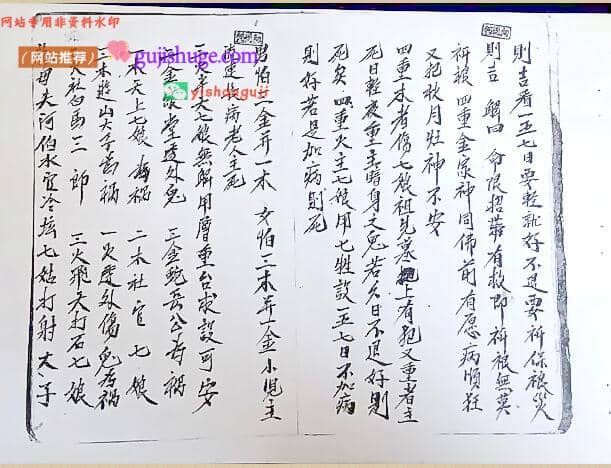 网站专用非资料水印
(网站推荐)
gujishuge.com
yishanguji
則吉看一五七日要輕就好不退要祈保禳災
則吉 解曰 命限招葬有救即祈禳無莫
祈禳四重金家神同佛前有愿病順狂
又犯秋月灶神不安
四重木者傷七娘祖兄墓上有犯又重者主
死日輕夜重主暗身之鬼若久日不退好則
死矣 四重火主七娘用七牲設一五七日不加病
則好若是加病則死
男怕二金并一木 女怕三木并一金小児主
病老人主死
二火主天七娘無解用層重台求設可安
三金 堂邊外鬼 三金蛇岳公為禍
一木天上七娘為禍 二木社官七娘
三木遊山太子為禍 一火邊外傷鬼為禍
火社白馬三郎 三火飛天打石七娘
母夫阿伯水官冷坛七姑打射太子